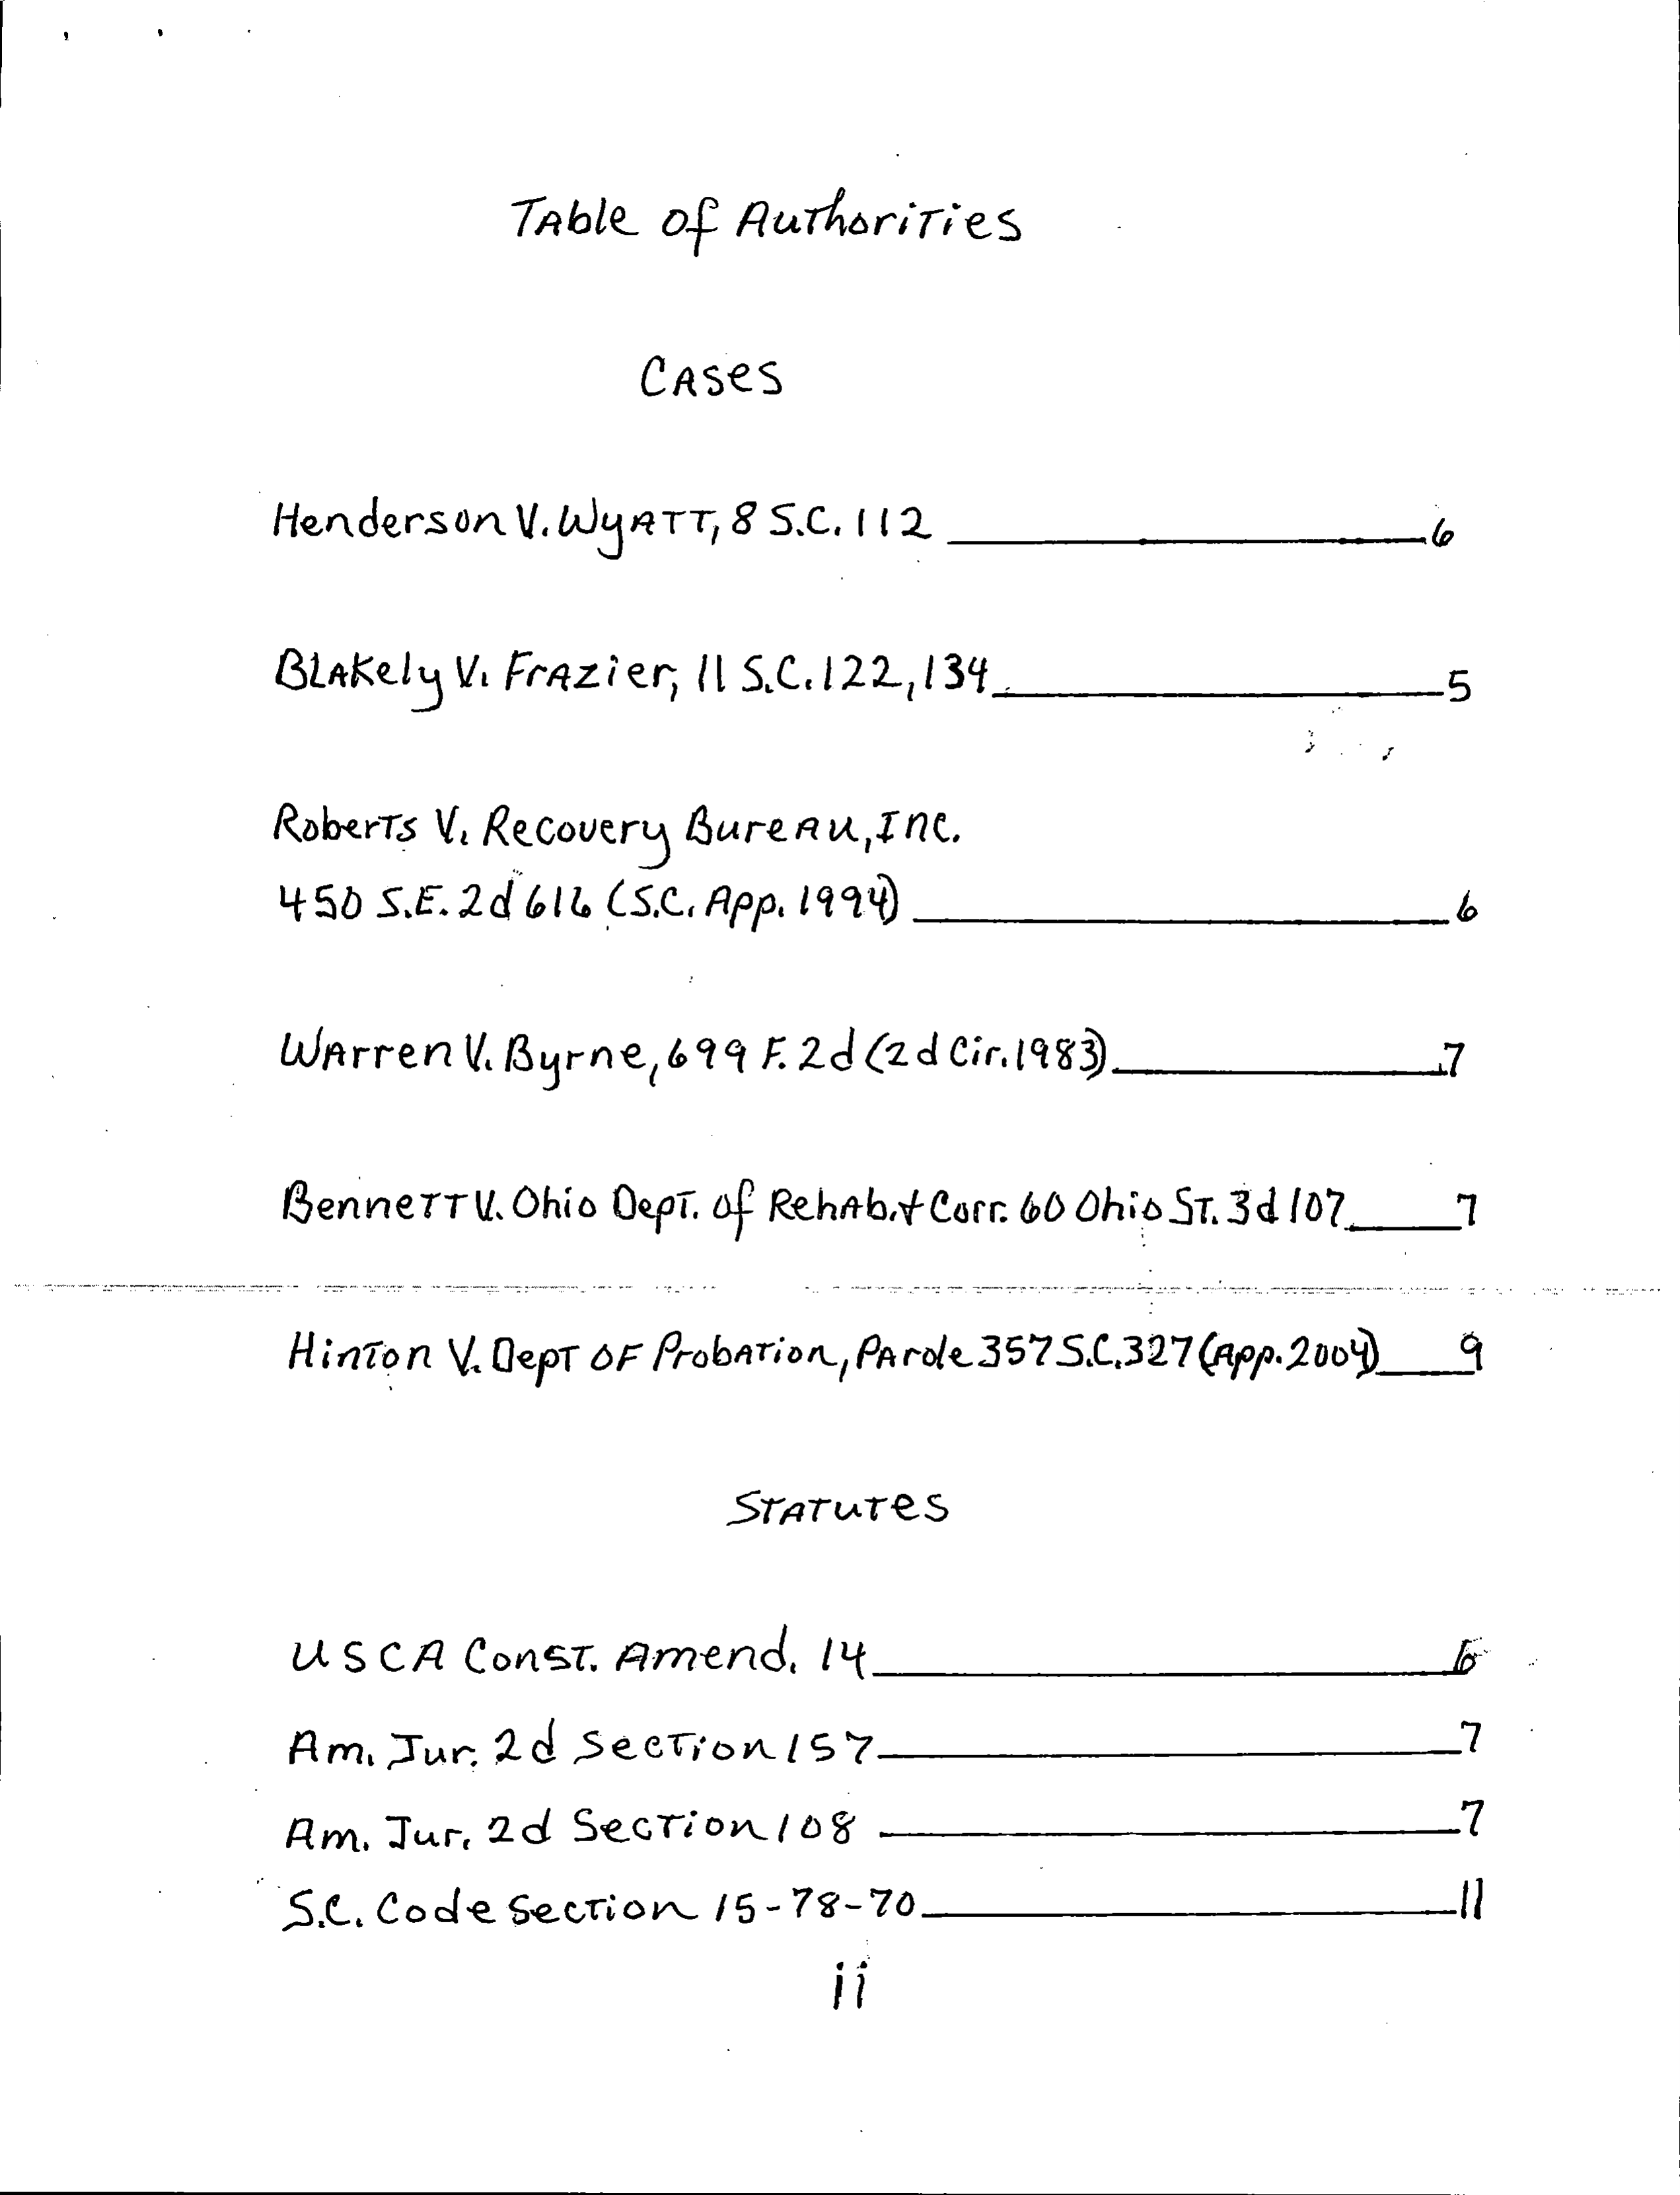 Table of Authorities
Cases
Henderson V. Wyatt, 8 S.C. 112 6
Blakely V. Frazier, 11 S.C. 122, 134 5
Roberts V. Recovery Bureau, Inc.
450 S.E. 2d 616 (S.C. App. 1994) 6
Warren V. Byrne, 699 F. 2d (2d Cir. 1983) 7
Bennett V. Ohio Dept. of Rehab. & Corr. 60 Ohio St. 3d 107 7
Hinton V. Dept OF Probation, Parole 357 S.C. 327 (App. 2004) 9
Statutes
USCA Const. Amend. 14
Am. Jur. 2d Section 157 7
Am. Jur. 2d Section 108 7
S.C. Code Section 15-78-70 11
ii